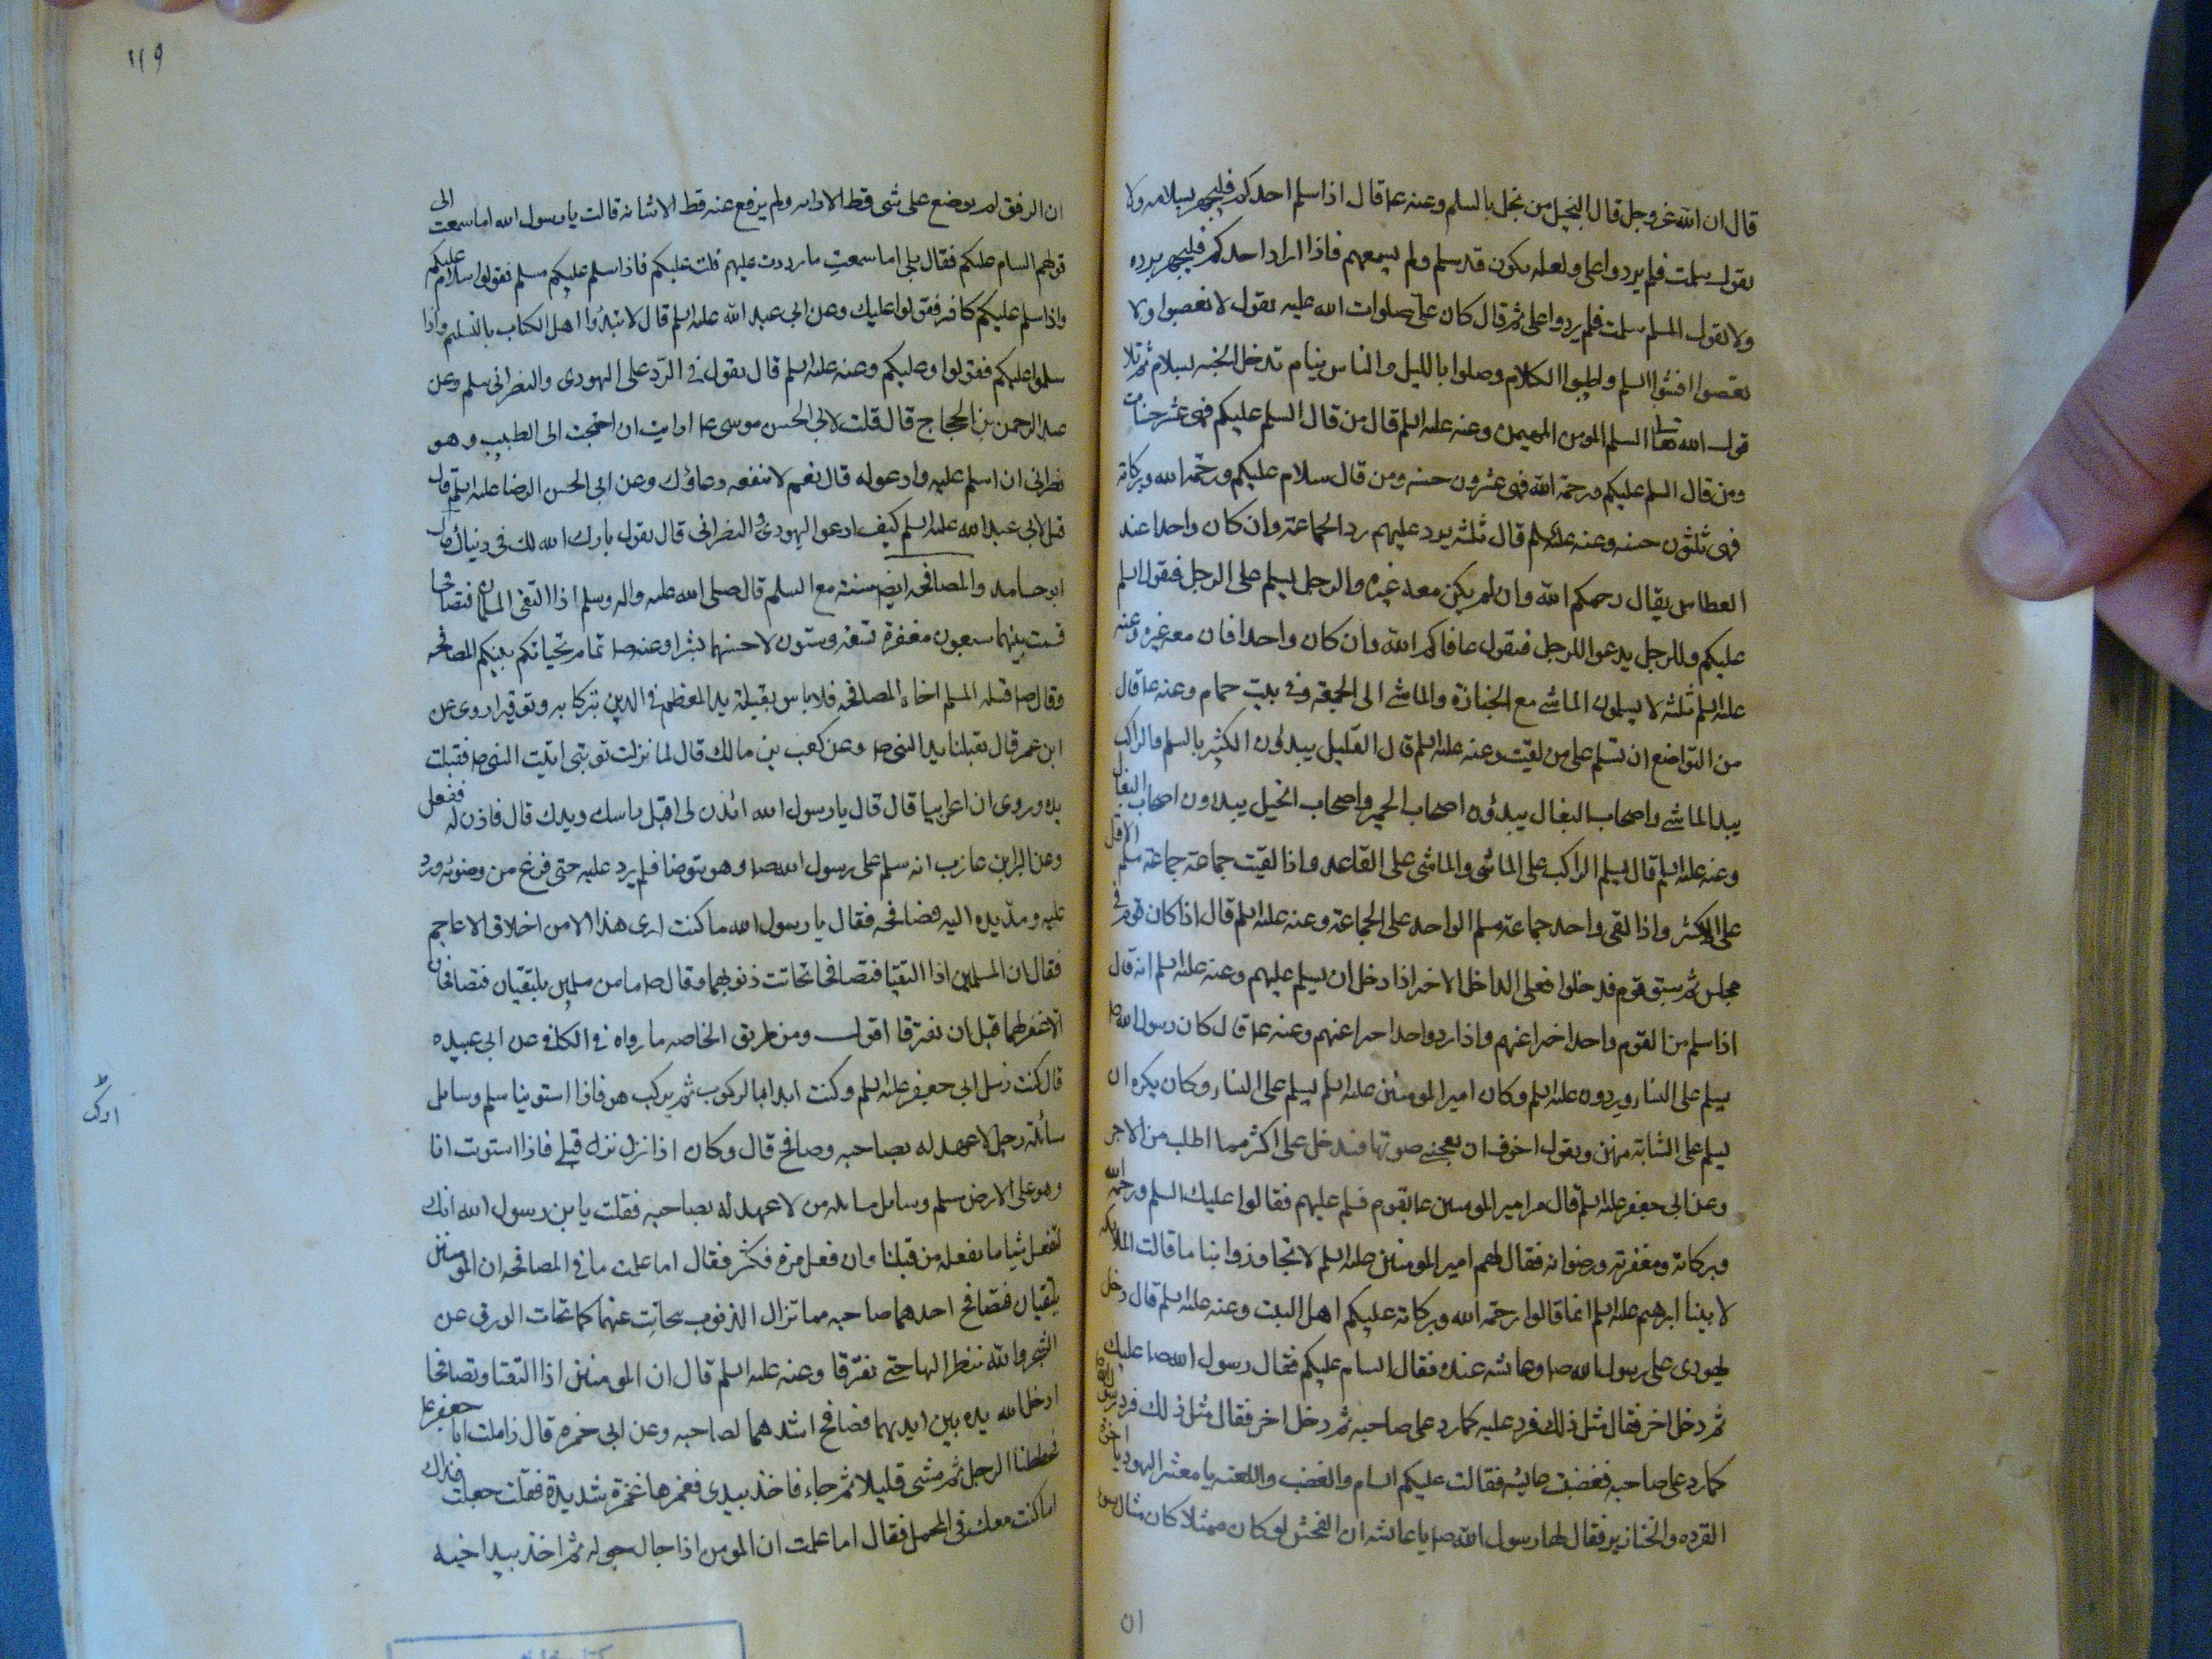 قال ان الله عز وجل قال البخيل من بخل بالسلم وعنه ع‍ قال اذا سلم احدكم فليجهر بسلامه ولا
يقول سلمت فلم يردوا على ولعله يكون قد سلم ولم يسمعهم فاذا اراد احدكم فليجهر برده
ولا يقول المسلم سلمت فلم يردوا على ثم قال كان على صلوات الله عليه يقول لا تغضبوا ولا
تغضبوا افشوا السلم واطيبوا الكلام وصلوا بالليل والناس نيام تدخل الجنة بسلام ثم تلا
قول الله تعالى السلم المومن المهيمن وعنه عليه السلم قال من قال السلم عليكم فهى عشر حسنات
ومن قال السلم عليكم ورحمة الله فهى عشرون حسنه ومن قال سلام عليكم ورحمة الله وبركاته
فهى ثلثون حسنه وعنه عليه السلم قال ثلثة يرد عليهم رد الجماعة وان كان واحدا عند
العطاس يقال رحمكم الله وان لم يكن معه غيره والرجل يسلم على الرجل فيقول السلم
عليكم والرجل يدعوا للرجل فيقول عافاكم الله وان كان واحدا فان معه غيره وعنه
عليه السلم ثلثة لا يسلمون الماشى مع الجنازة والماشى الى الجمعة وفى بيت حمام وعنه ع‍ قال
من التواضع ان تسلم على من لقيت وعنه عليه السلم قال القليل يبدؤن الكثير بالسلم والراكب
يبدا الماشى واصحاب البغال يبدؤن اصحاب الحمير واصحاب الخيل يبدون اصحاب البغال
وعنه عليه السلم قال يسلم الراكب على الماشى والماشى على القاعد واذا لقيت جماعة جماعة سلم الاقل
على الاكثر واذا لقى واحد جماعة سلم الواحد على الجماعة وعنه عليه السلم قال اذا كان قوم فى
مجلس ثم سبق قوم فدخلوا فعلى الداخل الاخر اذا دخل ان يسلم عليهم وعنه عليه السلم انه قال
اذا سلم من القوم واحد اجزا عنهم واذا رد واحد اجزا عنهم وعنه ع‍ قال كان رسول الله ص
يسلم على النساء ويردون عليه السلم وكان امير المومنين عليه السلم يسلم على النساء وكان يكره ان
يسلم على الشابة منهن ويقول اخوف ان يعجبنى صوتها فيدخل على اكثر مما اطلب من الاجر
وعن ابى جعفر عليه السلم قال مر امير المومنين ع‍ بقوم فسلم عليهم فقالوا عليك السلم ورحمة الله
وبركاته ومغفرته ورضوانه فقال لهم امير المومنين عليه السلم لا تجاوزوا بنا ما قالت الملائكة
لابينا ابرهيم عليه السلم انما قالوا رحمة الله وبركاته عليكم اهل البيت وعنه عليه السلم قال دخل
يهودى على رسول الله ص وعائشه عنده فقال السام عليكم فقال رسول الله ص عليك
ثم دخل اخر فقال مثل ذلك فرد عليه كما رد على صاحبه ثم دخل اخر فقال مثل ذلك فرد رسول الله ص
كما رد على صاحبه فغضبت عائشه فقالت عليكم السام والغضب واللعنه يا معشر اليهود يا اخوة
القرده والخنازير فقال لها رسول الله ص يا عائشه ان الفحش لو كان ممثلا كان مثال سوء
ان الرفق لم يوضع على شئ قط الا زانه ولم يرفع عنه قط الا شانه قالت يا رسول الله اما سمعت الى
قولهم السام عليكم فقال بلى اما سمعت ما رددت عليهم قلت عليكم فاذا سلم عليكم مسلم فقولوا سلام عليكم
واذا سلم عليكم كافر فقولوا عليك وعن ابى عبد الله عليه السلم قال لا تبدؤا اهل الكتاب بالتسليم واذا
سلموا عليكم فقولوا وعليكم وعنه عليه السلم قال يقول فى الرد على اليهودى والنصرانى سلم وعن
عبد الرحمن بن الحجاج قال قلت لابى الحسن موسى ع‍ ارايت ان احتجت الى الطبيب وهو
نصرانى ان اسلم عليه وادعو له قال نعم لا ينفعه دعاؤك وعن ابى الحسن الرضا عليه السلم قال
قيل لابى عبد الله عليه السلم كيف ادعو لليهودى والنصرانى قال يقول بارك الله لك فى دنياك قال
ابو حامد والمصافحه ايضا سنة مع السلم قال صلى الله عليه واله وسلم اذا التقى المسلمان فتصافحا
قسمت بينهما سبعون مغفرة تسعه وستون لاحسنهما بشرا وعنه ص تمام تحياتكم بينكم المصافحه
وقال ص قبلة المسلم اخاه المصافحه فلا باس بقبلة يد المعظم فى الدين تبركا به وتوقيرا روى عن
ابن عمر قال قبلنا يد النبى ص وعن كعب بن مالك قال لما نزلت توبتى اتيت النبى ص فقبلت
يده وروى ان اعرابيا قال قال يا رسول الله ائذن لى اقبل راسك ويدك قال فاذن له ففعل
وعن البراء بن عازب انه سلم على رسول الله ص وهو يتوضا فلم يرد عليه حتى فرغ من وضوئه ورد
عليه ومد يده اليه فصافحه فقال يا رسول الله ما كنت ارى هذا الا من اخلاق الاعاجم
فقال ان المسلمين اذا التقيا فتصافحا تحاتت ذنوبهما وقال ص ما من مسلمين يلتقيان فتصافحان
الا غفر لهما قبل ان يفترقا اقول ومن طريق الخاصه ما رواه فى الكافى عن ابى عبيده
قال كنت زميل ابى جعفر عليه السلم وكنت ابدا بالركوب ثم يركب هو فاذا استوينا سلم وسايل
سائلة رجل لا عهد له بصاحبه وصافح قال وكان اذا نزل نزل قبلى فاذا استوت انا
وهو على الارض سلم وسايل سائله من لا عهد له بصاحبه فقلت يا بن رسول الله انك
لتفعل شيا ما يفعله من قبلنا وان فعل مرة فكثر فقال اما علمت ما فى المصافحه ان المومنين
يلتقيان فتصافح احدهما صاحبه مما تزال الذنوب تحات عنهما كما تحات الورق عن
الشجر والله ينظر اليهما حتى يفترقا وعنه عليه السلم قال ان المومنين اذا التقيا وتصافحا
ادخل الله يده بين ايديهما فصافح اشدهما لصاحبه وعن ابى حمزه قال زاملت ابا جعفر ع‍
فحططنا الرحل ثم مشى قليلا ثم جاء فاخذ بيدى فغمزها غمزة شديدة فقلت جعلت فداك
اما كنت معك فى المحمل فقال اما علمت ان المومن اذا جال جوله ثم اخذ بيد اخيه
١١٩